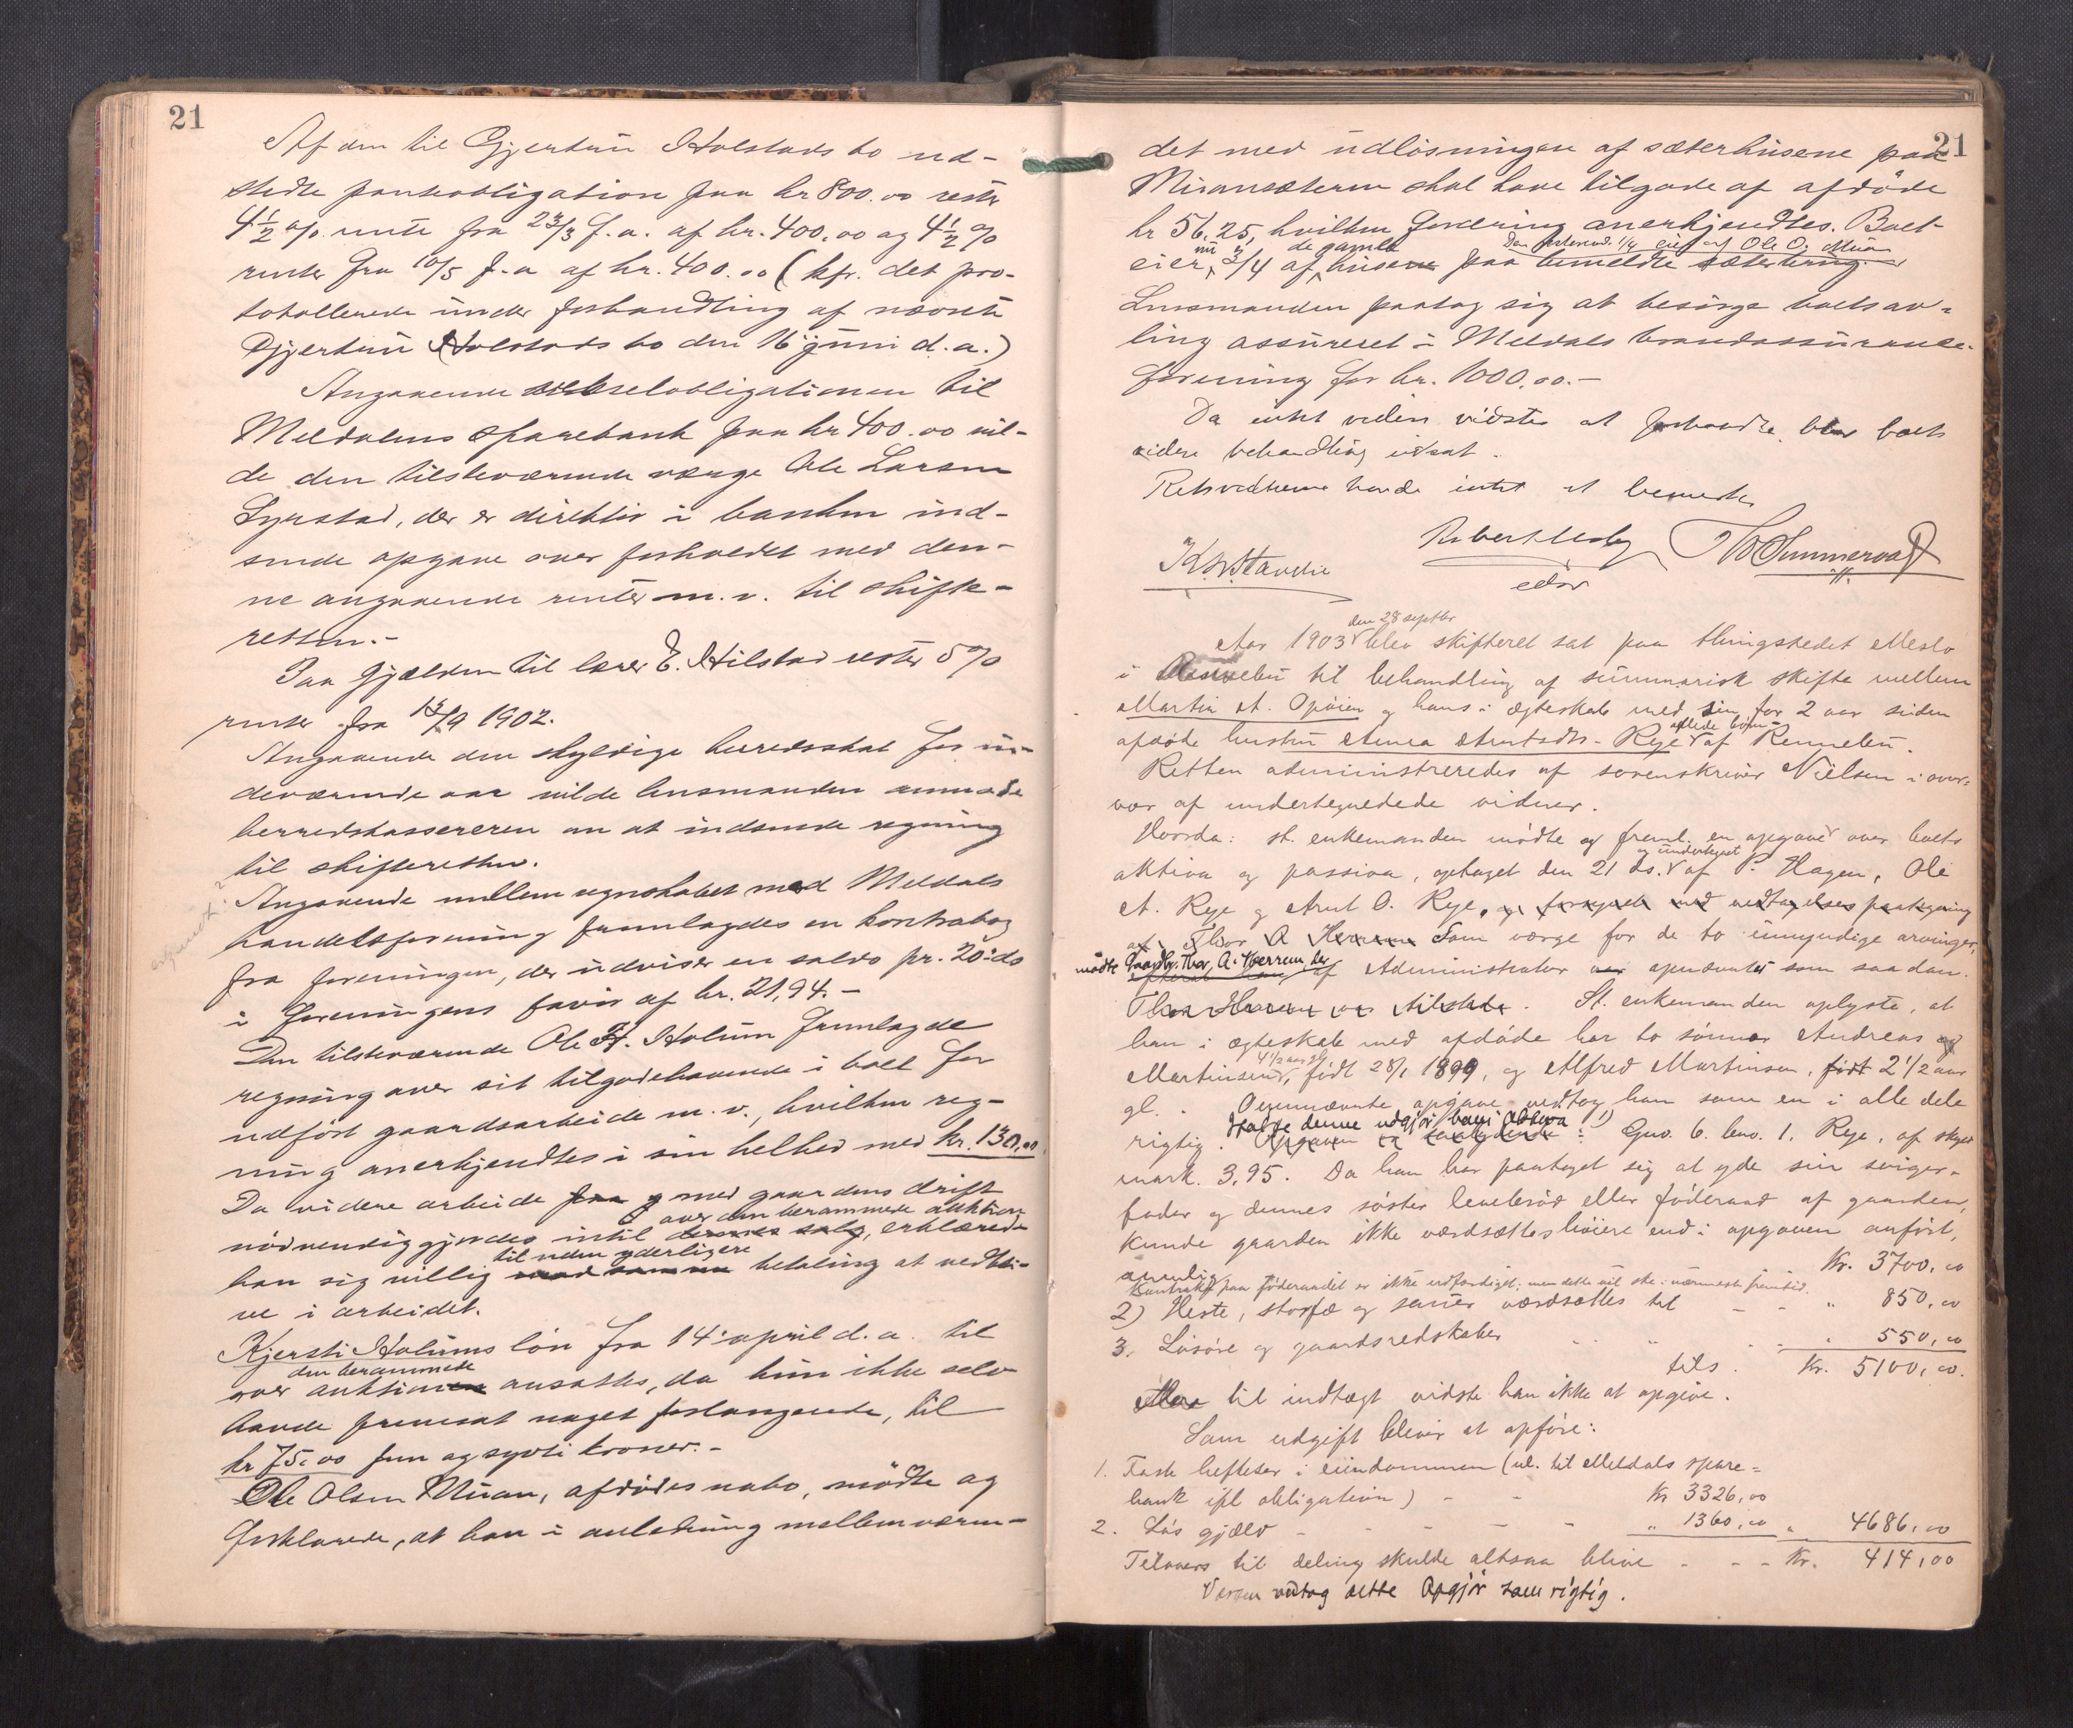 21
Af den til Gjertrud Holstads bo ud-
stedte panteobligation paa kr 800.00 rester
4½ % rente fra 23/3 f.a. af kr. 400,00 og 4½ %
renter fra 10/5 f.a af kr. 400.00 (kfr. det pro-
tokollerede under forhandling af nævnte
Gjertrud Holstads bo den 16 juni d.a.)
Angaaende vekselobligationen til
Meldalens Sparebank paa kr 400.00 vil-
de den tilstedeværende værge Ole Larsen
Syrstad, der er direktør i banken ind-
sende opgave over forholdet med den-
ne angaaende renter m.v. til skifte-
retten.-
Paa gjælden til lærer E. Hilstad rester 5%
renter fra 13/9 1902.
Angaaende den skyldige herredsskat for in-
deværende aar vilde lensmanden anmode
herredskassereren om at indsende regning
til skifteretten.
Angaaende mellemregnskabet med Meldals
handelsforening fremlagdes en kontrabog
fra foreningen, der udviser en saldo pr. 20: ds
i foreningens favør af kr. 21,94.-
Den tilstedeværende Ole H. Holum fremlagde
regning over sit tilgodehavende i boet for
udført gaardsarbeide m.v., hvilken reg-
ning anerkjendtes i sin helhed med kr. 130,00.
Da videre arbeide paa g med gaardens drift
over den berammede auktion
nødvendiggjordes indtil dennes salg, erklærede
til uden yderligere
han sig villig mod samme betaling at vedbli-
ve i arbeidet.
Kjersti Holums løn fra 14 april d.a. til
den berammede
over auktionen ansattes, da hun ikke selv
havde fremsat noget forlangende, til
kr 75,00 fem og sytti kroner.-
Ole Olsen Muan, afdødes nabo, mødte og
forklarede, at han i anledning mellemværen-
21
det med udløsningen af sæterhusene paa
Muansæteren skal have tilgode af afdøde
kr 56,25, hvilken fordring anerkjendtes. Boet
nu de gamle Den resterend. 1/4 eies af Ole O. Muan
eier 3/4 af husene paa bemeldte sæterbring.
Lensmanden paatog sig at besørge boets av-
ling assureret i Meldals brandassurance-
forening for kr. 1000.00.-
Da intet videre vidstes at forhandle, blev boets
videre behandling udsat.
Retsvidnerne havde intet at bemerke
Robert Uby
K. N. Stavne
edsv
den 28 septbr
Aar 1903 blev skifteret sat paa thingstedet Meslo
i Rennebu til behandling af summarisk skifte mellem
Martin A. Opøien og hans i ægteskab med sin for 2 aar siden
aflede børn
afdøde hustru Anna Arntsdtr. Reye af Rennebu.
Retten administreredes af sorenskriver Nielsen i over-
vær af undertegnedede vidner.
Hvorda: st. enkemanden mødte og freml. en opgave over boets
og undertegnet
aktiva og passiva, optaget den 21 ds. af P. Hagen, Ole
A. Reye og Arnt O. Reye, og forsynet med vedtagelses paategning
af Thor A Herrem Som værge for de to umyndige arvinger,
mødte Gaardbr. Thor A. Herrem, der
af Administrator var opnævnte som saadan.
Thor Herrem var tilstede. St. enkemanden oplyste, at
han i ægteskab med afdøde har to sønner Andreas og
4½ aar gl.
Martinsen, født 28/1 1899, og Alfred Martinsen, født 2½ aar
gl. Ovennævnte opgave vedtog han som en i alle dele
Ifølge denne udgjør boets Aktiva
rigtig. Opgaven er saalydende: 1) Gno. 6. bno. 1. Reye, af skyld
mark. 3,95. Da han har paataget sig at yde sin sviger-
fader og dennes søster levebrød eller føderaad af gaarden,
kunde gaarden ikke værdsættes høiere end i opgaven anført,
nemlig Kr. 3700,00
Kontrakt paa føderaadet er ikke udfærdiget; men dette vil ske i nærmeste fremtid.
2) Heste, storfæ og sauer værdsættes til - - " 850,00
3. Løsøre og gaardsredskaber " 550,00
tils. Kr. 5100,00.
Mere til indtægt vidste han ikke at opgive.
Som udgift bliver at opføre:
1. Faste heftelser i eiendommen (nl. til Meldals spare-
bank ifl obligation) - - Kr 3326,00
2. Løs gjæld - - - - - " 1360,00 " 4686,00
Tilovers til deling skulde altsaa blive - - - Kr. 414,00
Værgen vedtog dette Opgjør som rigtig.